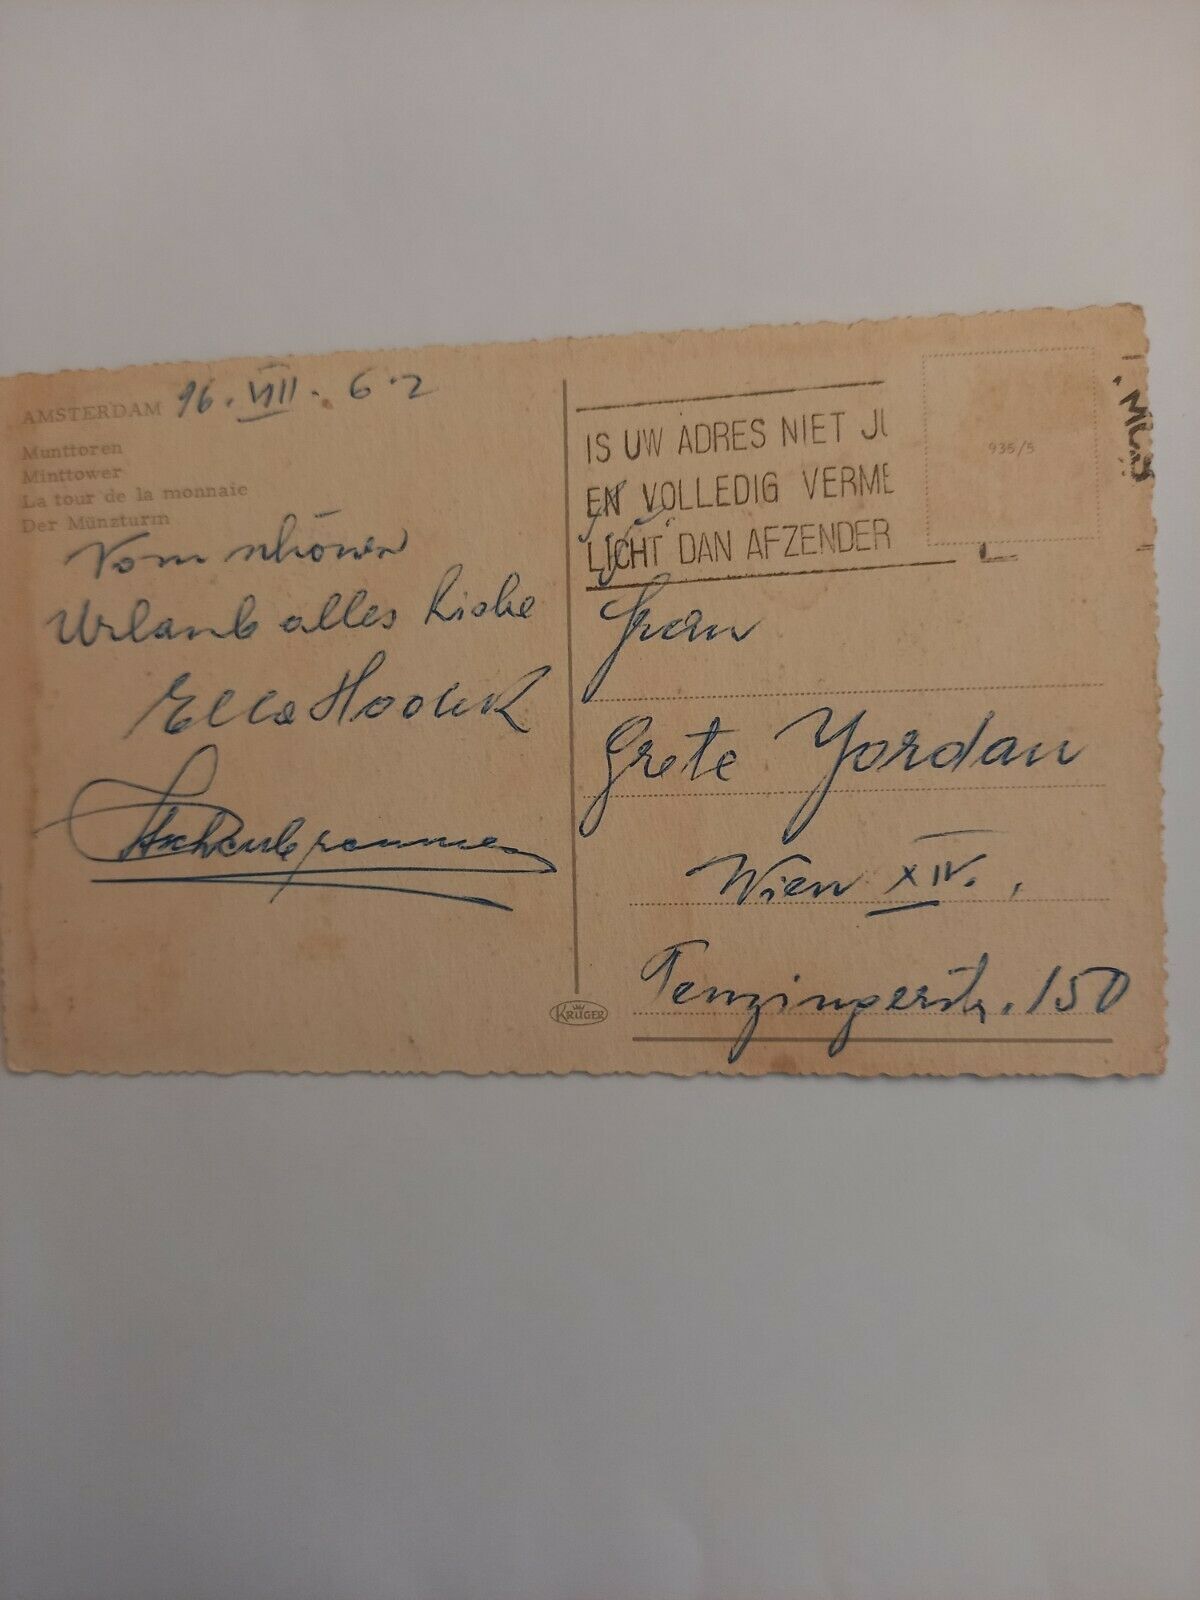 AMSTERDAM 16. VIII. 62
Munttoren
Minttower
La tour de la monnaie
Der Münzturm
Vom schönen
Urlaub alles Liebe
Ella
IS UW ADRES NIET JU
EN VOLLEDIG VERME
LICHT DAN AFZENDER
935/5
Frau
Grete Yordan
Wien XIV.,
Penzingerstr. 150
KRÜGER